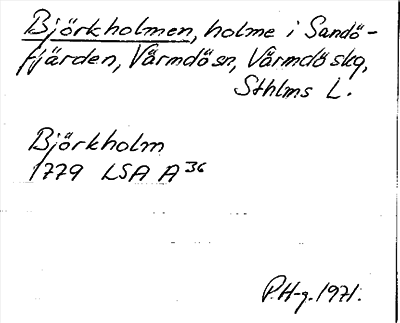 Björkholmen, holme i Sandö-
fjärden, Värmdö sn, Värmdö skg,
Sthlms L.
Björkholm
1779 LSA A 36
P.H-g. 1971.